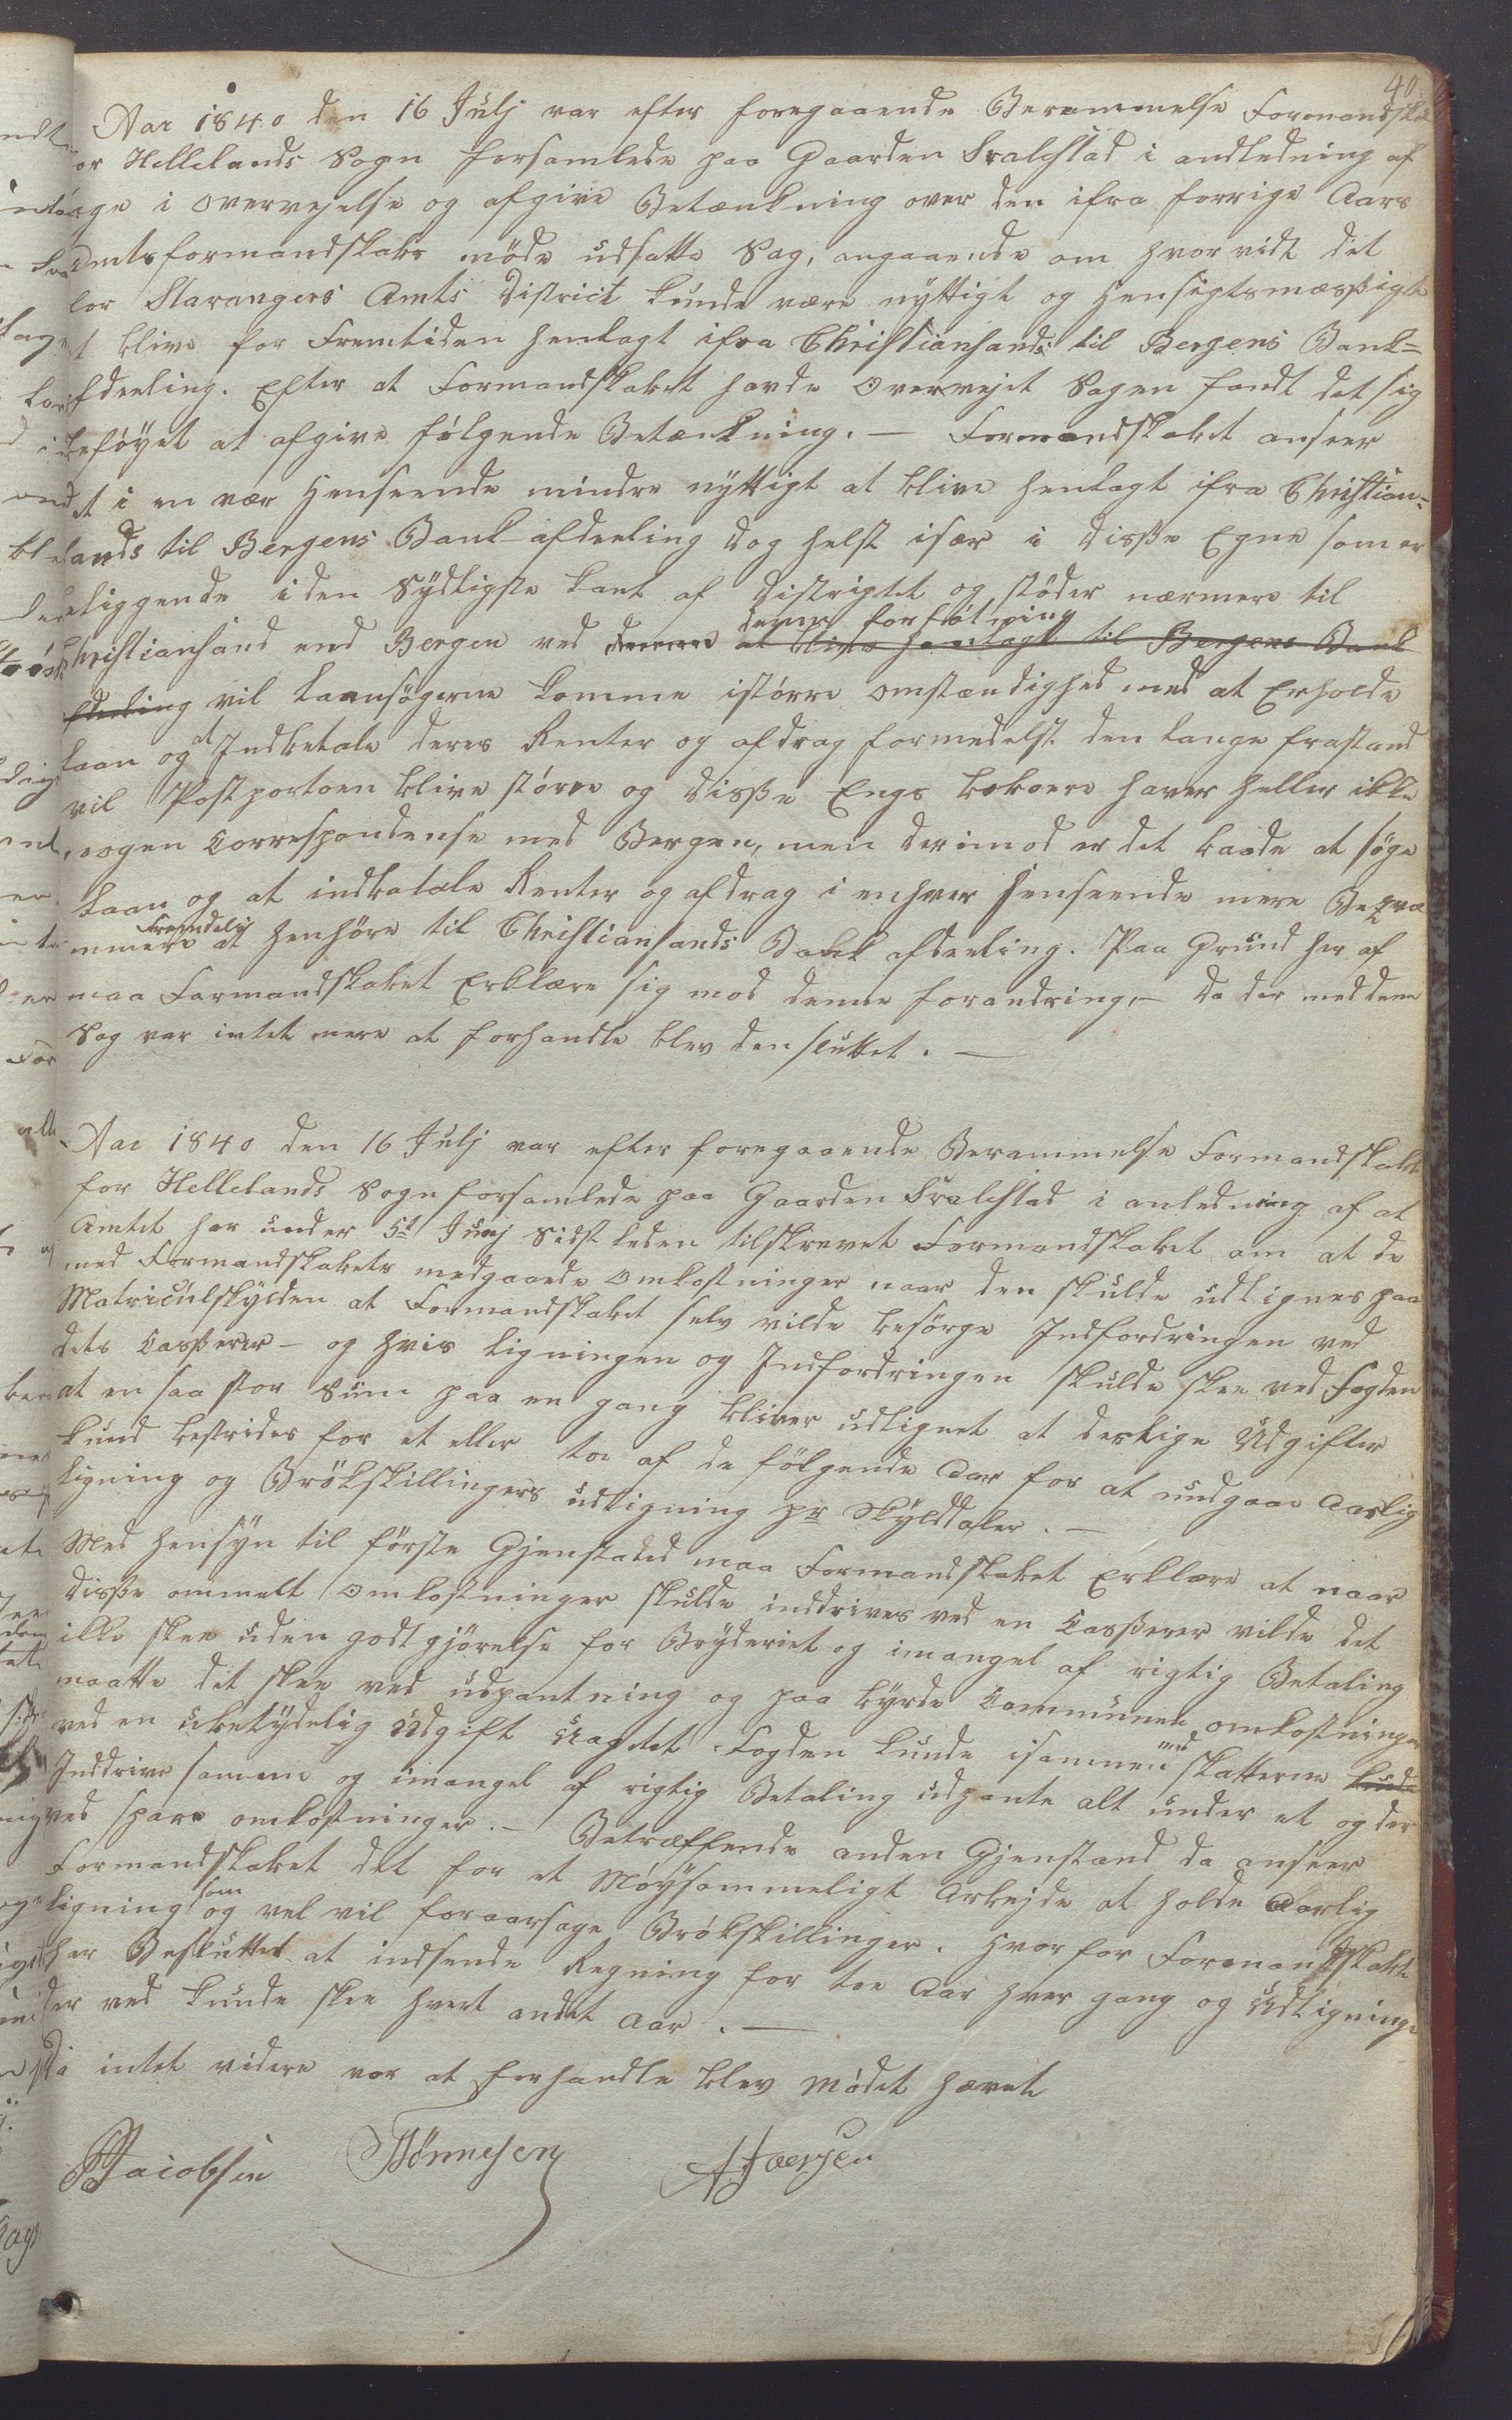 40.
Aar 1840 den 16 Julj var efter foregaaende Berammelse Formandska
or Hellelands Sogn forsamlede paa Gaarden Svalestad i andledning af
ge i overvejelse og afgive Betænkning over den ifra forrige Aars
Amtsformandskabs möde udsatte Sag, angaaende om hvorvidt det
for Stavangers Amts District kunde være nyttigt og Hensigtsmæssigt
t blive for Fremtiden henlagt ifra Christiansands til Bergens Bank=
fdeeling. Efter at Formandskabet havde Overvejet Sagen fandt det sig
beföyet at afgive fölgende Betænkning. — Formandskabet anseer
et i en vær Henseende mindre nyttigt at blive henlagt ifra Christian=
sands til Bergens Bank-afdeeling dog helst især i disse Egne som er
beliggende i den Sydligste kant af Distrigtet og stöder nærmere til
denne forflötning
Christiansand end Bergen ved at blive henlagt til Bergens Bank
fdeeling vil Laansögerne komme i större omstændighed med at Erholde
Laan og at Indbetale deres Renter og afdrag formedelst den lange frastand
vil Postportoen blive större og disse Engs beboere haver heller ikke
nogen Correspondense med Bergen, men derimod er det baade at söge
Laan og at indbatale Renter og afdrag i enhver henseende mere Beqvæ
Fremdelis
mmere at henhöre til Christiansands Bank afdeeling. Paa Grund her af
maa Formandskabet Erklære sig mod denne forandring, — Da der med denne
Sag var intet mere at forhandle blev den sluttet. —
Aar 1840 den 16 Julj var efter foregaaende Berammelse Formandskabet
for Hellelands Sogn forsamlede paa Gaarden Svalestad i anledning af at
Amtet har under 5t Junj Sidst leden tilskrevet Formandskabet om at de
med Formandskabets medgaaede Omkostninger naar den skulde udlignes paa
Matriculskylden at Formandskabet selv vilde besörge Indfordringen ved
dets Casserer — og hvis ligningen og Indfordringen skulde skee ved Fogden
at en saa stor Sum paa en gang bliver udlignet at deslige Udgifter
kund bestrides for et eller toe af de fölgende Aar for at undgaae Aarlig
Ligning og Brökskillingers udligning pr Skylddaler. —
Med hensyn til förste Gjenstand maa Formandskabet Erklære at naar
disse ommelt Omkostninger skulde inddrives ved en Casserer vilde det
ikke skee uden godtgjörelse for Bryderiet og imangel af rigtig Betaling
maatte det skee ved udpantning og paa byrde Communen omkostninger
ved en ubetydelig Udgift Uagtet Fogden kunde isammen med skatterne kunde
Inddrive samme og imangel af rigtig Betaling udpante alt under et og der
ved spare omkostninger. — Betræffende anden Gjenstand da anseer
Formandskabet det for et Möysommeligt Arbejde at holde Aarlig
ligning som og vel vil foraarsage Brökskillinger. Hvorfor Formandskabet
har Besluttet at indsende Regning for toe Aar hver gang og Udligninge
der ved kunde skee hvert andet Aar. —
Da intet videre var at forhandle blev Mödet hævet
Jacobsen Tönnesen A Iversen